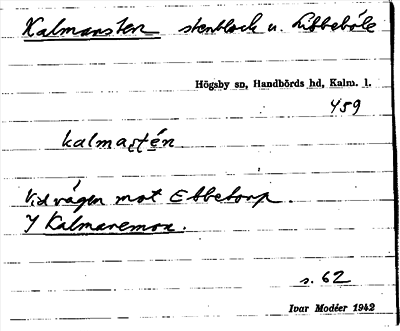 Kalmarsten stenblock u. Libbeböle
Högsby sn, Handbörds hd, Kalm. l.
459
kalmaștén
Vid vägen mot Ebbetorp.
I Kalmaremon.
s. 62
Ivar Modéer 1942